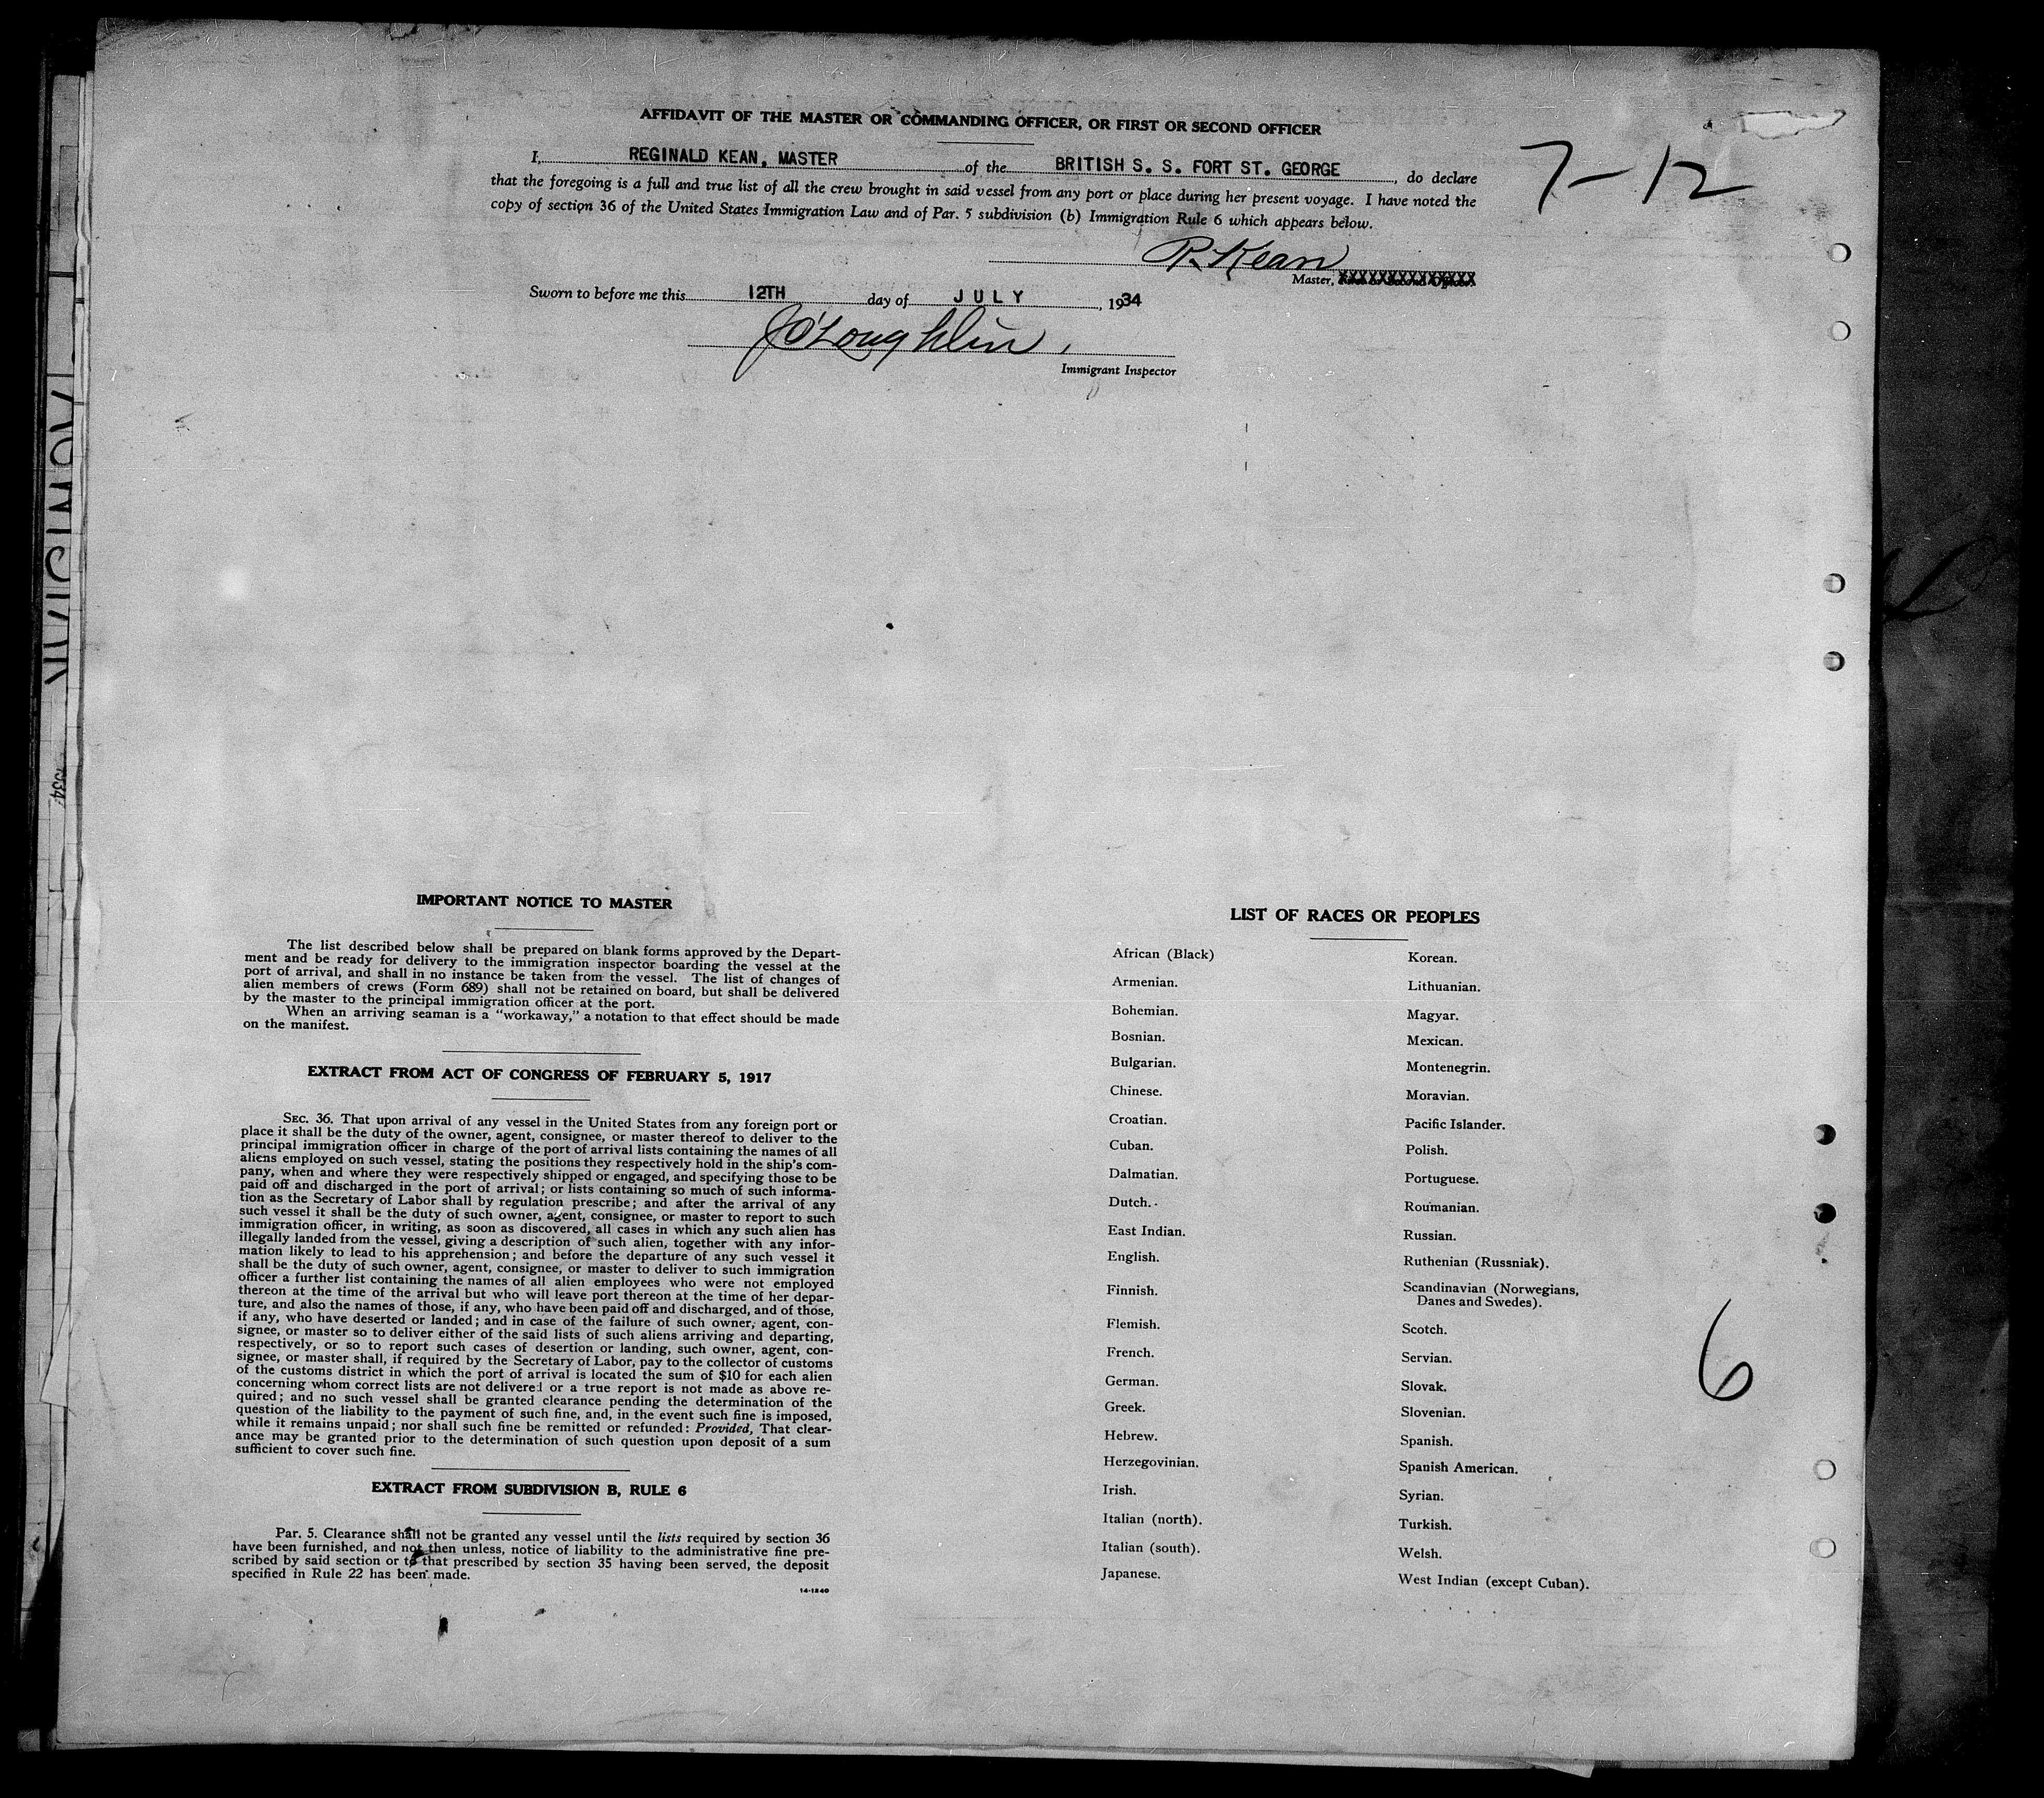 AFFIDAVIT OF THE MASTER OR COMMANDING OFFICER, OR FIRST OR SECOND OFFICER
I, REGINALD KEAN, MASTER of the BRITISH S. S. FORT ST. GEORGE, do declare
that the foregoing is a full and true list of all the crew brought in said vessel from any port or place during her present voyage. I have noted the
copy of section 36 of the United States Immigration Law and of Par. 5 subdivision (b) Immigration Rule 6 which appears below.
7-12
R. Kean
Master, First or Second Officer.
Sworn to before me this 12TH day of JULY, 1934
J O'Loughlin
Immigrant Inspector
IMPORTANT NOTICE TO MASTER
The list described below shall be prepared on blank forms approved by the Depart-
ment and be ready for delivery to the immigration inspector boarding the vessel at the
port of arrival, and shall in no instance be taken from the vessel. The list of changes of
alien members of crews (Form 689) shall not be retained on board, but shall be delivered
by the master to the principal immigration officer at the port.
When an arriving seaman is a "workaway," a notation to that effect should be made
on the manifest.
EXTRACT FROM ACT OF CONGRESS OF FEBRUARY 5, 1917
SEC. 36. That upon arrival of any vessel in the United States from any foreign port or
place it shall be the duty of the owner, agent, consignee, or master thereof to deliver to the
principal immigration officer in charge of the port of arrival lists containing the names of all
aliens employed on such vessel, stating the positions they respectively hold in the ship's com-
pany, when and where they were respectively shipped or engaged, and specifying those to be
paid off and discharged in the port of arrival; or lists containing so much of such informa-
tion as the Secretary of Labor shall by regulation prescribe; and after the arrival of any
such vessel it shall be the duty of such owner, agent, consignee, or master to report to such
immigration officer, in writing, as soon as discovered, all cases in which any such alien has
illegally landed from the vessel, giving a description of such alien, together with any infor-
mation likely to lead to his apprehension; and before the departure of any such vessel it
shall be the duty of such owner, agent, consignee, or master to deliver to such immigration
officer a further list containing the names of all alien employees who were not employed
thereon at the time of the arrival but who will leave port thereon at the time of her depar-
ture, and also the names of those, if any, who have been paid off and discharged, and of those,
if any, who have deserted or landed; and in case of the failure of such owner, agent, con-
signee, or master so to deliver either of the said lists of such aliens arriving and departing,
respectively, or so to report such cases of desertion or landing, such owner, agent, con-
signee, or master shall, if required by the Secretary of Labor, pay to the collector of customs
of the customs district in which the port of arrival is located the sum of $10 for each alien
concerning whom correct lists are not delivered or a true report is not made as above re-
quired; and no such vessel shall be granted clearance pending the determination of the
question of the liability to the payment of such fine, and, in the event such fine is imposed,
while it remains unpaid; nor shall such fine be remitted or refunded: Provided, That clear-
ance may be granted prior to the determination of such question upon deposit of a sum
sufficient to cover such fine.
EXTRACT FROM SUBDIVISION B, RULE 6
Par. 5. Clearance shall not be granted any vessel until the lists required by section 36
have been furnished, and not then unless, notice of liability to the administrative fine pre-
scribed by said section or to that prescribed by section 35 having been served, the deposit
specified in Rule 22 has been made.
14-1240
LIST OF RACES OR PEOPLES
African (Black)
Armenian.
Bohemian.
Bosnian.
Bulgarian.
Chinese.
Croatian.
Cuban.
Dalmatian.
Dutch.
East Indian.
English.
Finnish.
Flemish.
French.
German.
Greek.
Hebrew.
Herzegovinian.
Irish.
Italian (north).
Italian (south).
Japanese.
Korean.
Lithuanian.
Magyar.
Mexican.
Montenegrin.
Moravian.
Pacific Islander.
Polish.
Portuguese.
Roumanian.
Russian.
Ruthenian (Russniak).
Scandinavian (Norwegians,
Danes and Swedes).
Scotch.
Servian.
Slovak.
Slovenian.
Spanish.
Spanish American.
Syrian.
Turkish.
Welsh.
West Indian (except Cuban).
6